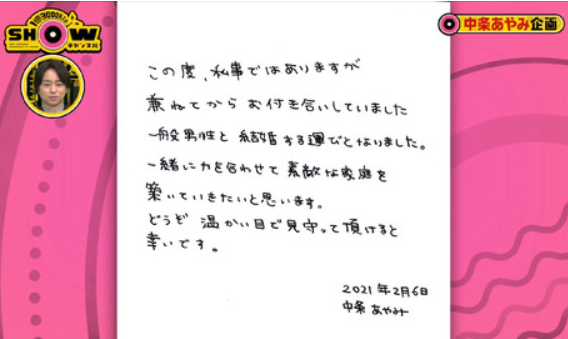 1億3000万人の
SHOW
チャンネル
中条あやみ企画
この度、私事ではありますが
兼ねてから お付き合いしていました
一般男性と 結婚する運びとなりました。
一緒に力を合わせて 素敵な家庭を
築いていきたいと思います。
どうぞ 温かい目で見守って頂けると
幸いです。
2021年2月6日
中条 あやみ